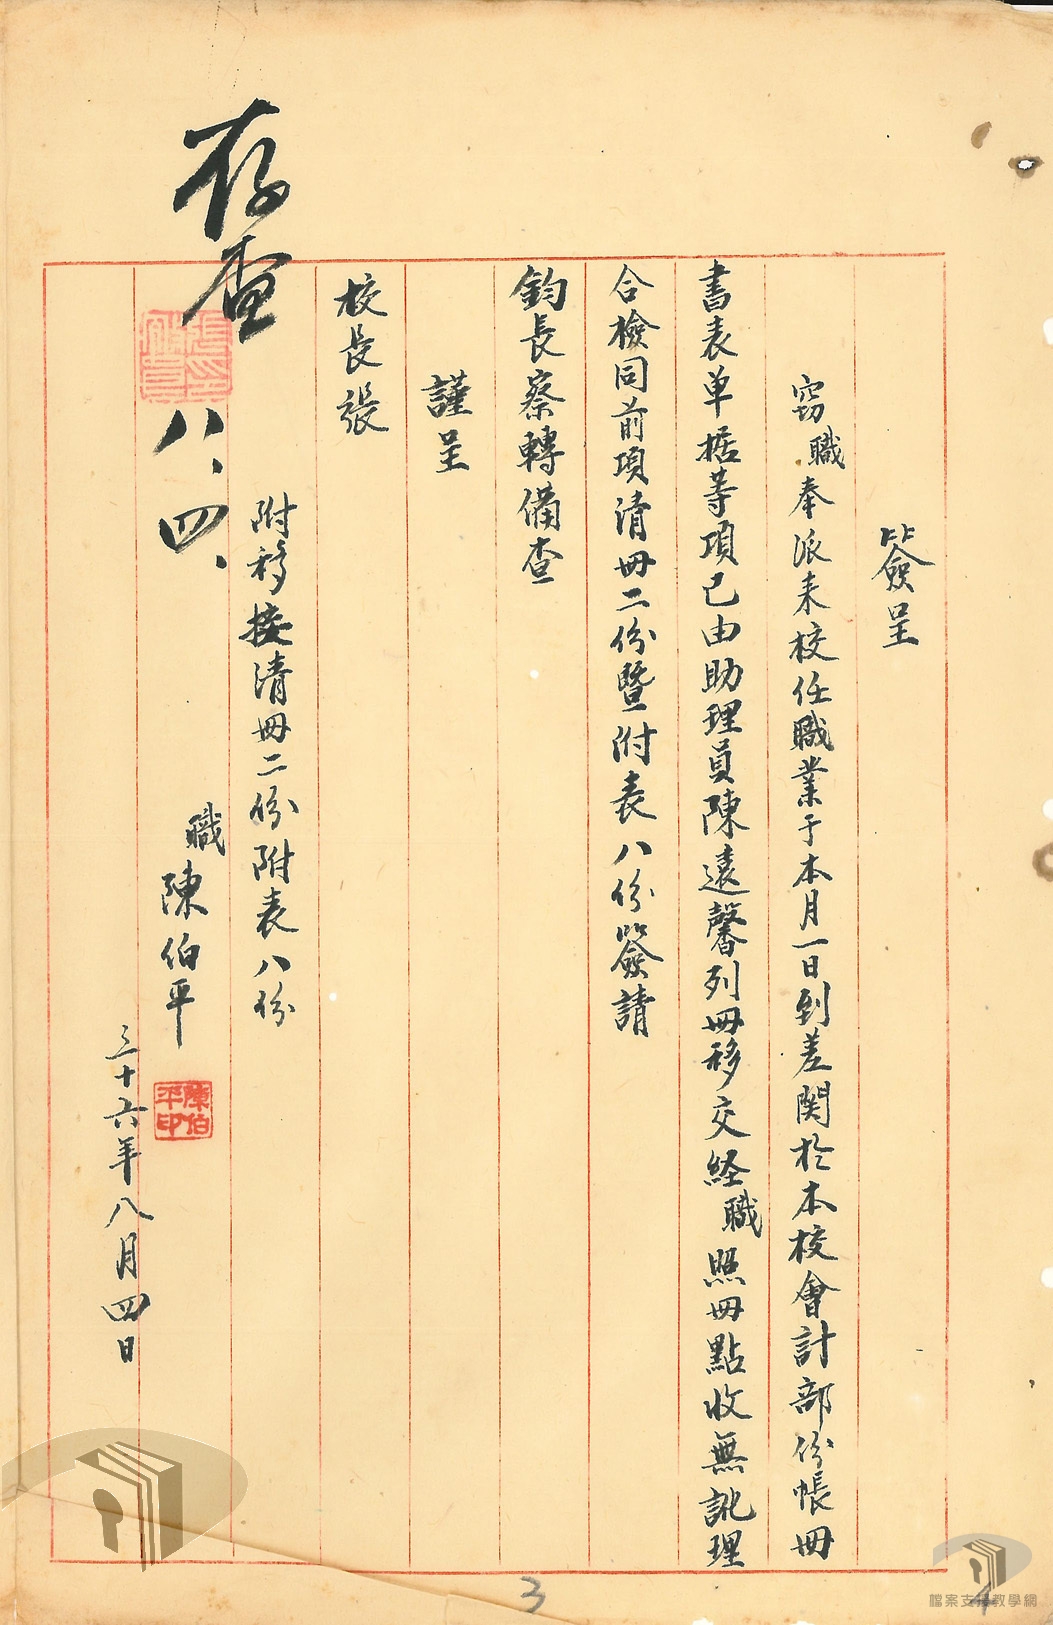 簽呈
竊職奉派来校任職業于本月一日到差関於本校會計部份帳冊
書表单据等項已由助理員陳遠馨列冊移交経職照冊點收無訛理
合檢同前項清冊二份暨附表八份簽請
鈞長察轉備查
謹呈
校長張
附移接清冊二份附表八份
職陳伯平
陳伯平印
三十六年八月四日
存查
八、四、
3
檔案支援教學網